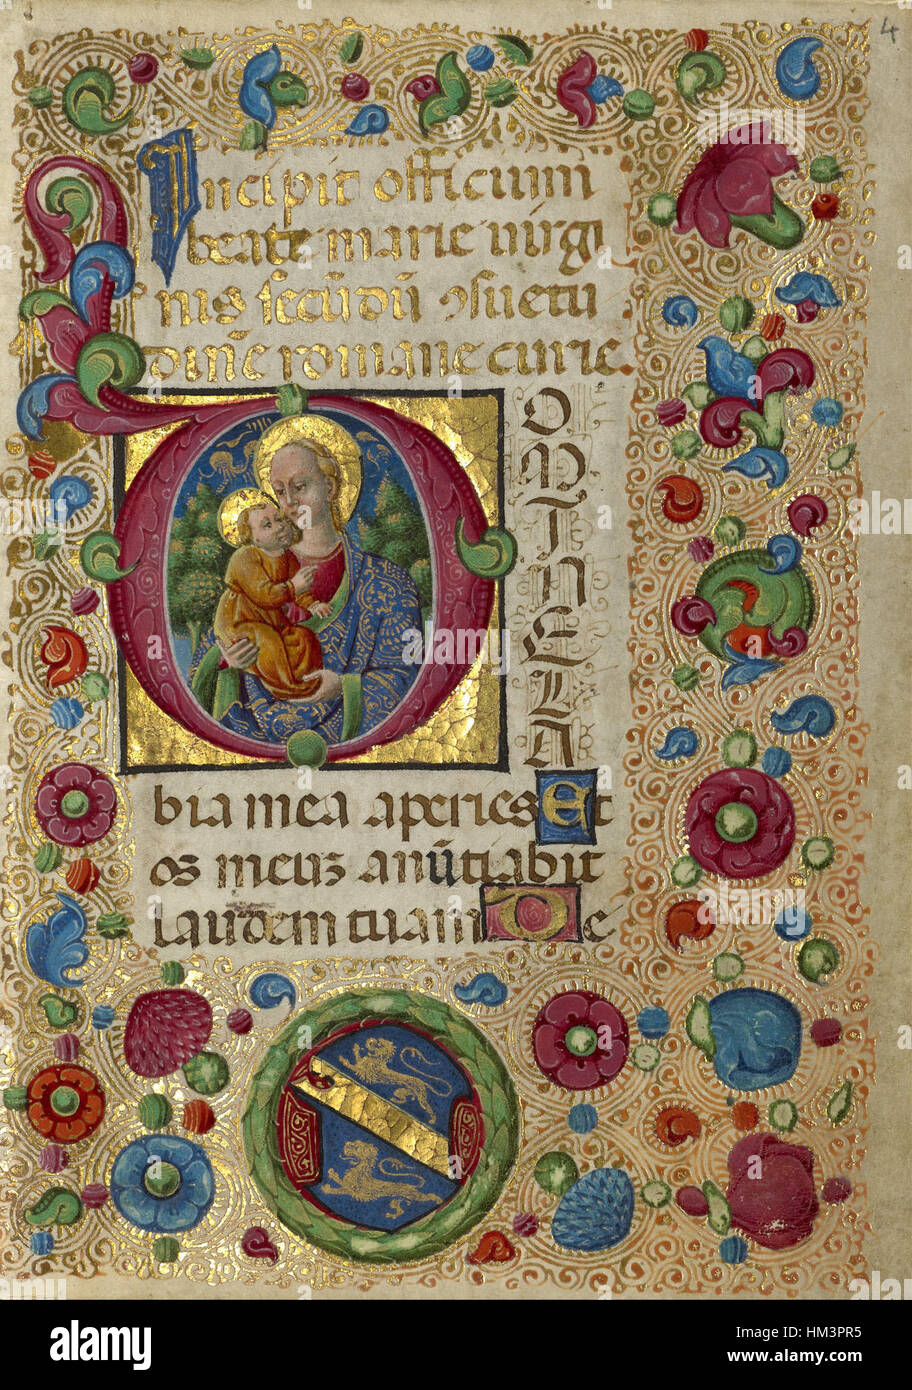 4
Incipit officium
beate marie uirgi
nis secūdū ꝯsuetu
dinē romane curie
DOMINE LA
bia mea aperies Et
os meuꝫ anūtiabit
laudem tuam De
a
alamy
alamy
Image ID: HM3PR5
www.alamy.com